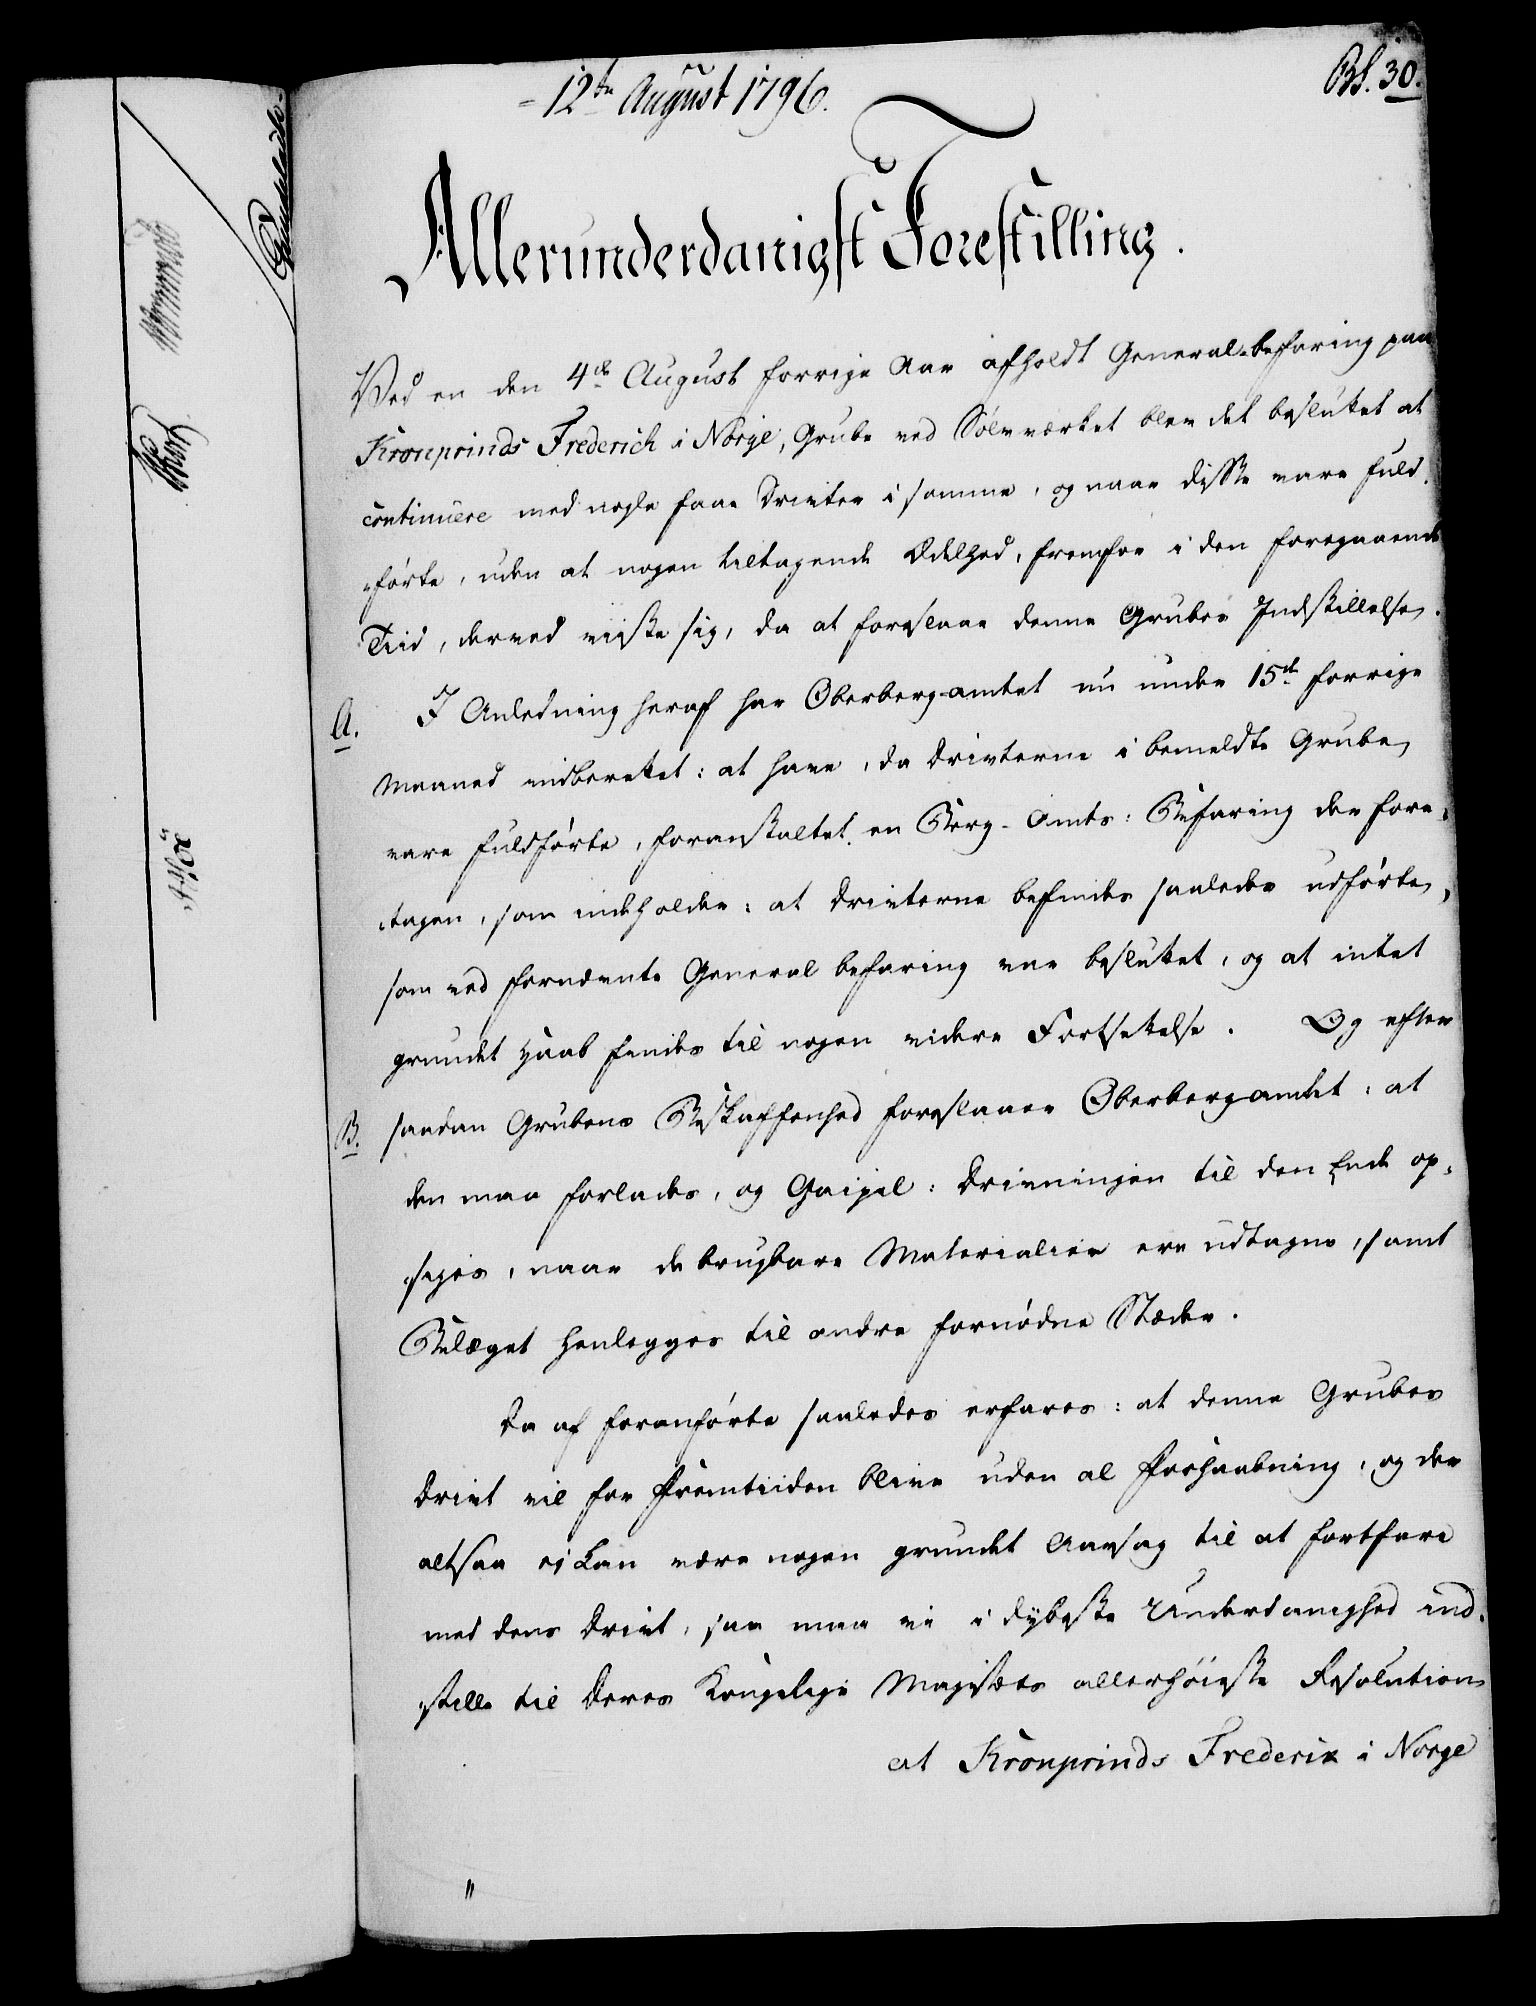 12te August 1796.
BS. 30.
Allerunderdanigst Forestilling.
Ved en den 4de August forrige Aar afholdt General-befaring paa
Kronprinds Frederich i Norge, Grube ved Sølvværket blev det besluttet at
continuere med nogle faae Drivter i samme, og naar disse vare fuld-
førte, uden at nogen tiltagende Ædelhed, fremfor i den foregaaende
Tiid, derved viiste sig, da at foreslaae denne Grubes Indstillelse.
A. I Anledning heraf har Oberbergamtet nu under 15de forrige
Maaned indberettet: at have, da Drivterne i bemeldte Grube,
vare fuldførte, foranstaltet en Berg-Amts-Befaring der fore-
tagen, som indeholder: at Drivterne befindes saaledes udførte,
som ved fornævnte General befaring var besluttet, og at intet
grundet Haab findes til nogen videre Fortsettelse. Og efter
B. saadan Grubens Beskaffenhed foreslaaer Oberbergamtet: at
den maa forlades, og Gaipel-Drivningen til den Ende op-
siges, naar de brugbare Materialier ere udtagne, samt
Belæget henlegges til andre fornødne Stæder.
Da af foranførte saaledes erfares: at denne Grubes
Drivt vil for Fremtiiden blive uden al Forhaabning, og der
altsaa ej kan være nogen grundet Aarsag til at fortfare
med dens Drivt, saa maa vi i dybeste Underdanighed ind-
stille til Deres Kongelige Majestæts allerhøieste Resolution
at Kronprinds Frederix i Norge